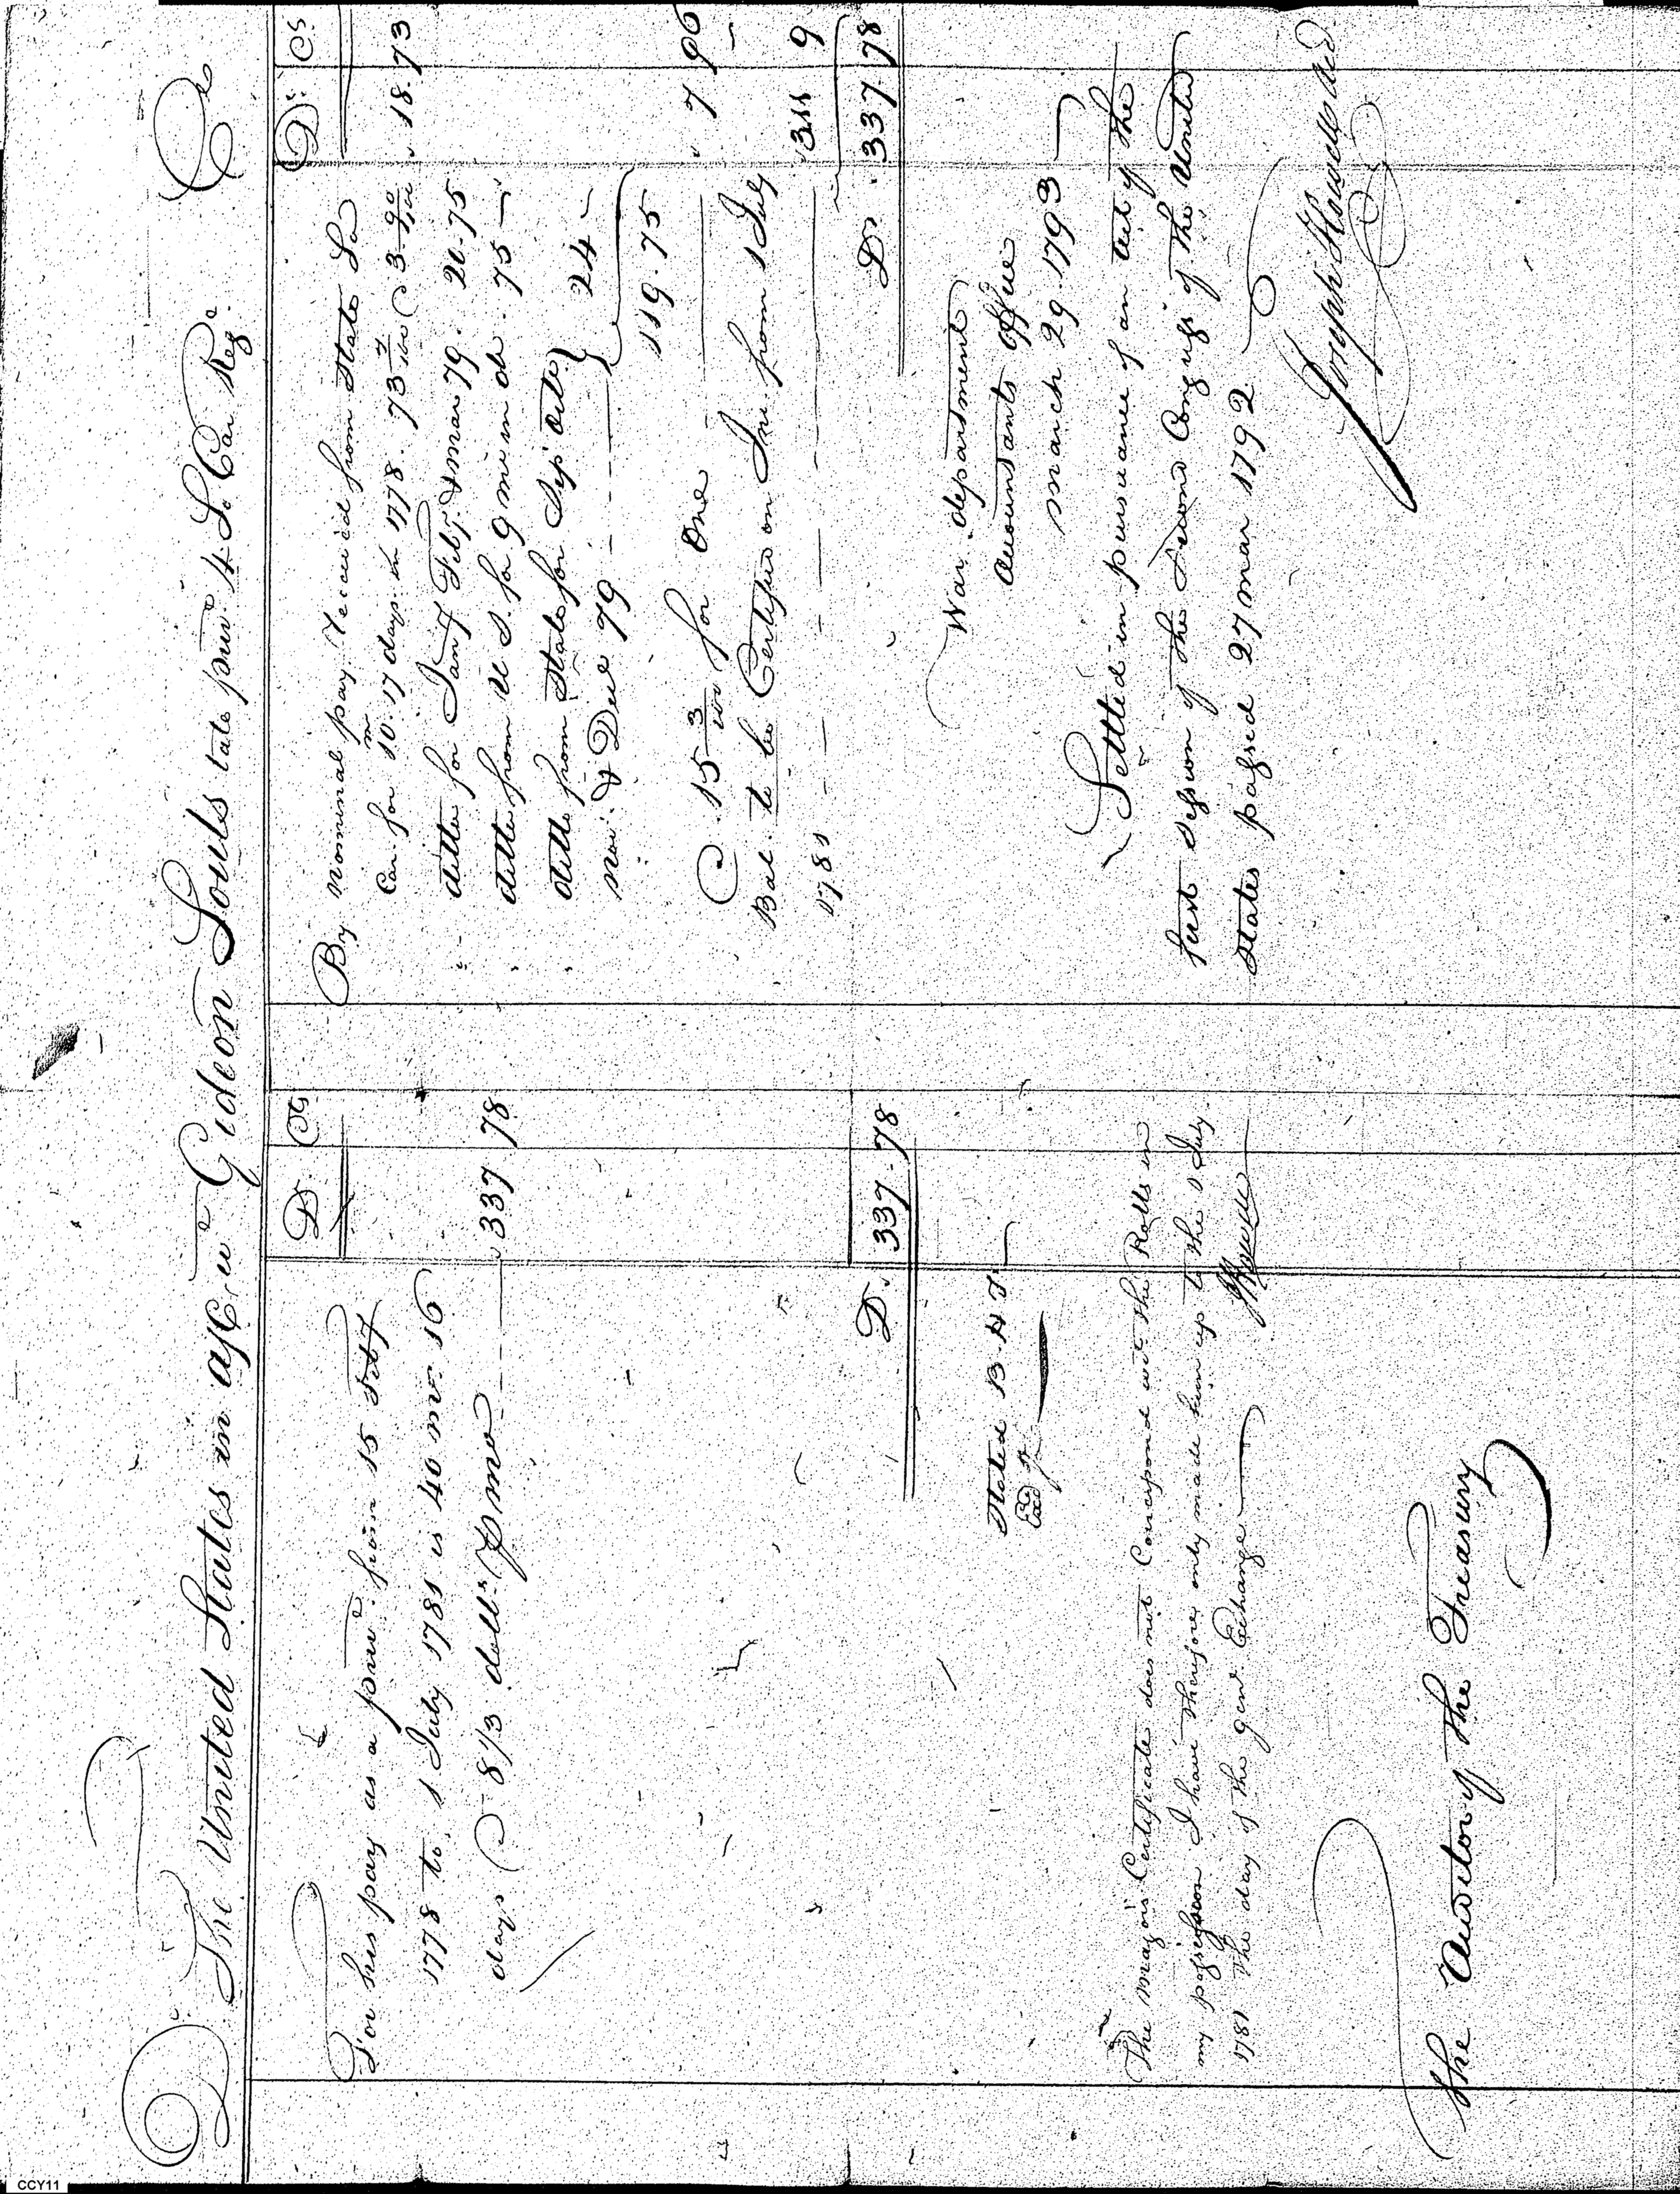 Dr The United States in a/c wt Gideon Souls late privt 4 So Car Regt Cr
D. Cs
For his pay as a privt from 15 Feby
1778 to 1 July 1781 is 40 mo. 16
days @ 8 1/3 dolls p mo 337 78
D. 337.78
Stated B. H T.
Exd
The Majors Certificate does not Correspond wt the Rolls in
my possession I have therefore only made him up to the 1 July
1781 The day of the genl Exchange
JHowell
The Auditor of the Treasury
Ds Cs
By nominal pay received from State So
Car. for 10m 17 days in 1778. 73 7/100 @ 3 90/100 18.73
ditto for Jany Feby & mar 79. 20.75
ditto from U S. for 9 mo in do. 75
ditto from State for Sep Octr
Nov. & Decr 79 24
119.75
@ 15 3/100 for One 7 96
Bal. to be Certified on Int. from 1 July
1781 311 9
Ds. 337.78
War department
Accountants Office
March 29. 1793
Settled in pursuance of an Act of the
first Session of the Second Congress of the United
States passed 27 mar 1792
Joseph Howell Actt
CCY11